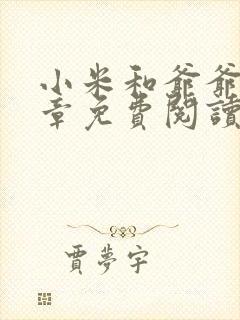 小米和爺爺
章免費閱讀
賈夢宇